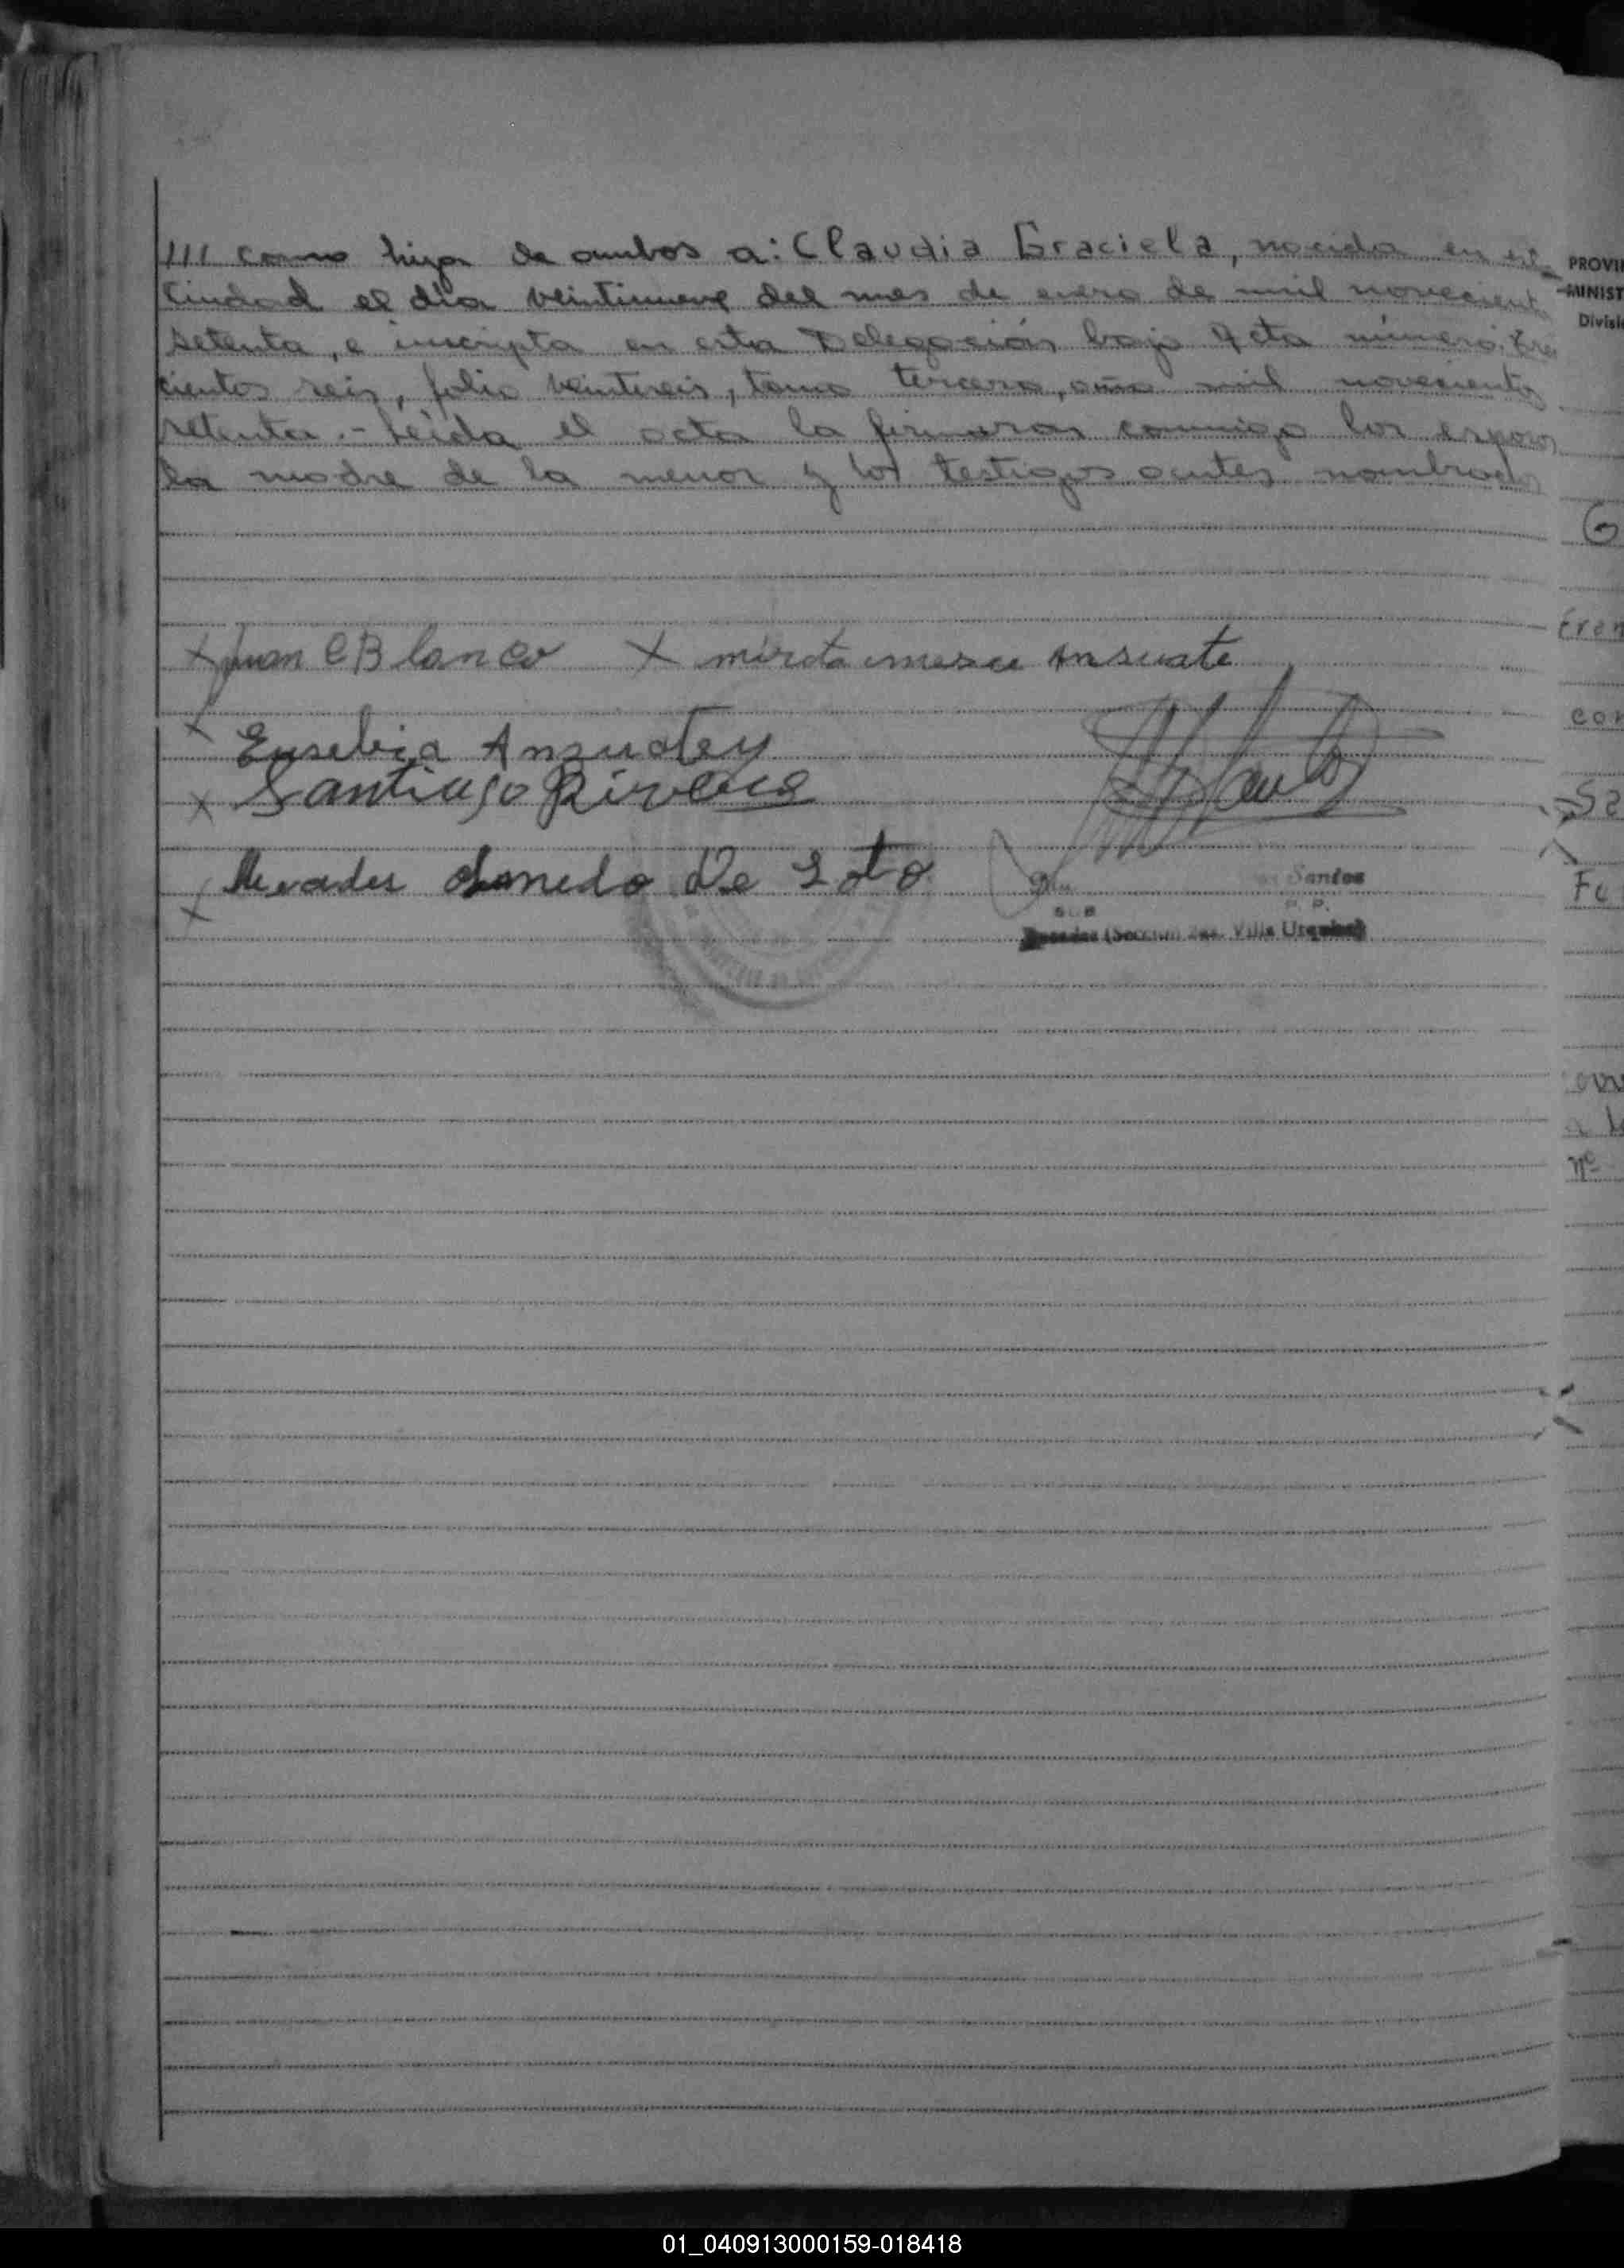 /// como hija de ambos a: Claudia Graciela, nacida en esta
Ciudad el día veintinueve del mes de enero de mil novecient
setenta, e inscripta en esta Delegación bajo Acta número: tres
cientos seis, folio veintiseis, tomo tercero, año mil novecientos
setenta.- Leída el acta la firmaron conmigo los esposos,
la madre de la menor y los testigos antes nombrados
x Juan C Blanco x mirta Ansuate
x Eusebia Anzuatey
x Santiago
x de Soto
Santos
Posadas (Sección 2da. Villa Urquiza)
PROVIN
MINIST
Divisi
con
nº
01_040913000159-018418